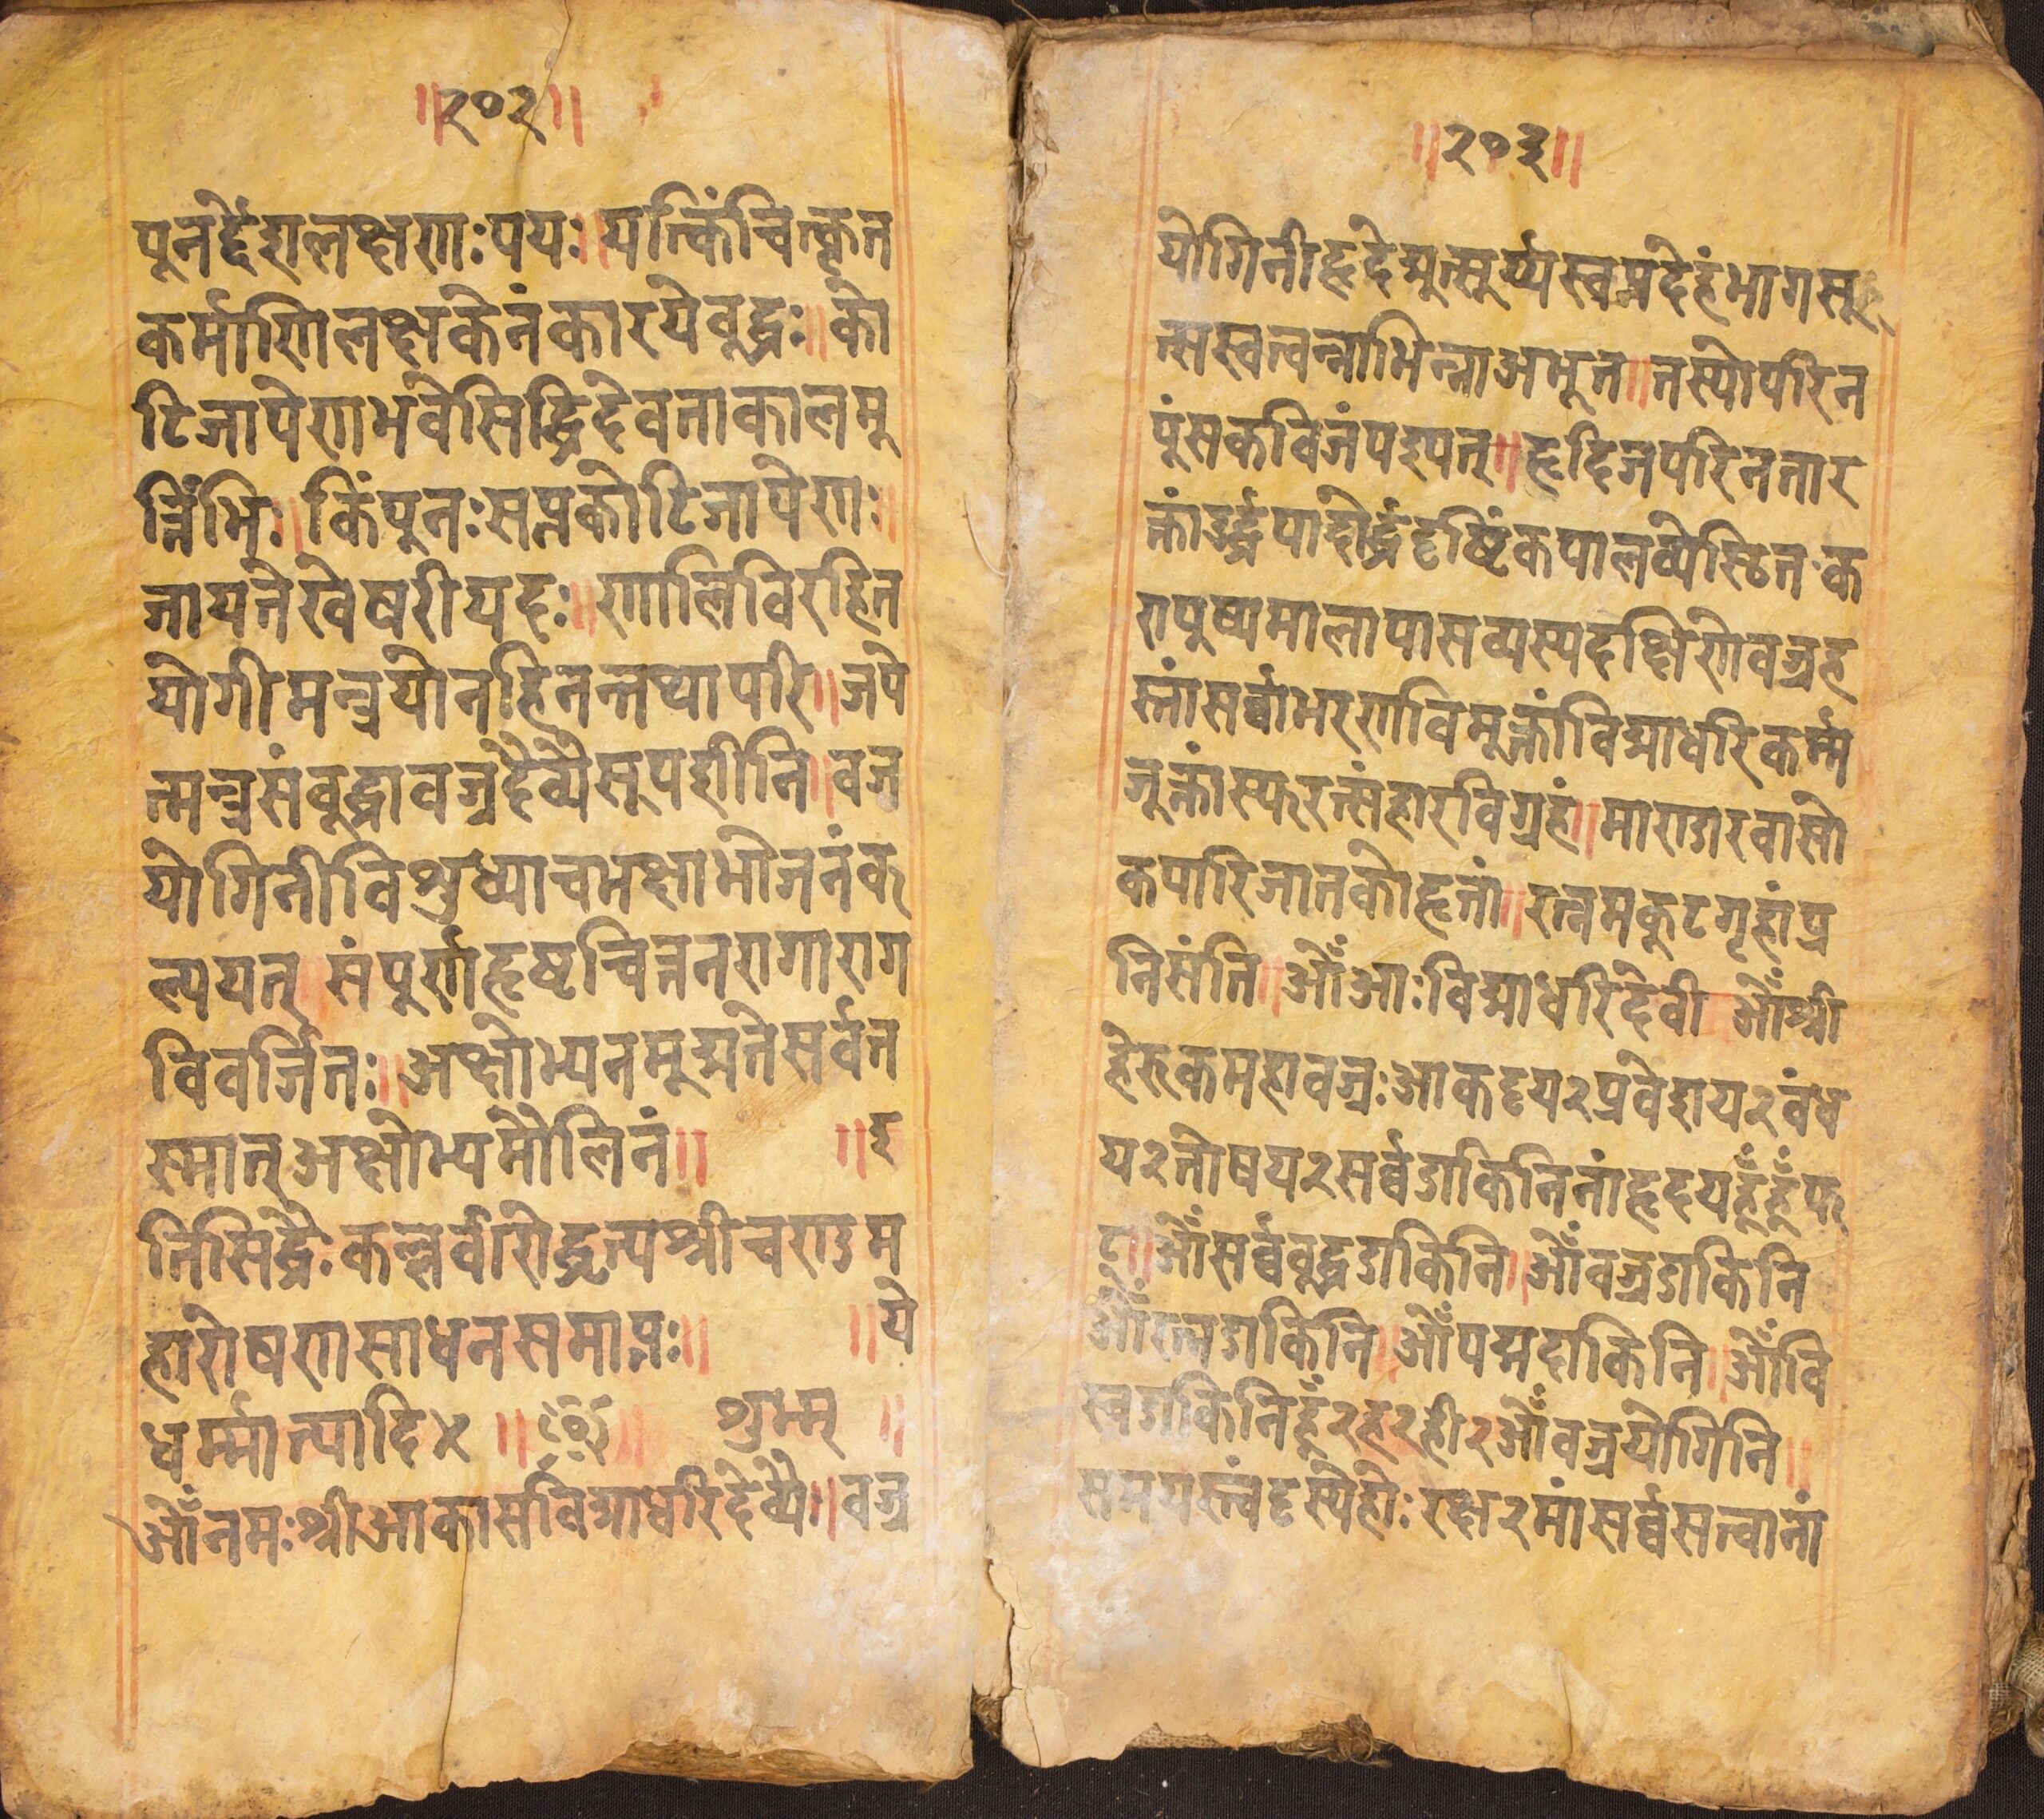 ॥२०२॥
पुनर्द्देशलक्षणः पयः॥ यत्किंचित्कृत
कर्माणि लक्षकेनं कारये बुद्धः॥ को
टिजापेण भवे सिद्धि देवता कालमू
र्त्तिंभिः॥ किं पुनः सप्तकोटिजापेणः॥
जायते खेषरीयदः॥ णालिविरहित
योगी मन्त्रयो न हि तन्तप्यापरि॥ जपे
त्मन्त्र संबुद्धा वज्रदैव्यै सूपशीति॥ वज
योगिनीविशुध्या च भक्षाभोजनं क
ल्पयत्॥ संपुर्णहृष्टचित्तन रागाराग
विवर्जितः॥ अक्षोभ्यन मूद्यते सर्वत
स्मात् अक्षोभ्यमौलिनं॥ ॥इ
ति सिद्धैः कल्ववीरोद्धृत्य श्रीचण्डम
हारोषणसाधन समाप्तः॥ ॥ये
धर्म्मात्यादि४ ॥ ॥ शुभम् ॥
ओँ नमः श्रीआकासविद्याधरिदेव्यै॥ वज्र
॥२०३॥
योगिनीहृदेद्मुत्सूर्य्यस्वप्नदेहंभागसू
त्सस्वत्वन्नाभिन्नाअभूत॥ तस्योपरि न
पुंसकविजं पश्यत्॥ हृदिजपरिनतार
क्तां उर्द्धपादोर्द्धं दृष्टिं कपालव्येस्थित क
रापुष्पमालापासव्यस्य दक्षिणे वज्रह
स्तां सर्व्वाभरणविमूक्तां विद्याधरिकर्म्म
जुक्तां स्फरत्संहारविग्रहां॥ माराडारवासो
कपारिजातकोहृतां॥ रत्नमकुटगृहां प्र
तिसंति॥ ओँ आः विद्याधरिदेवी ओँ श्री
हेरुकमहावज्रः आकदृय२ प्रवेशय२ वंध
य२ तोषय२ सर्व्वडाकिनिनां हृदय हूँ हूँ फ
ट्॥ ओँ सर्व्वबुद्धडाकिनि॥ ओँ वज्रडाकिनि
ओँ रत्नडाकिनि॥ ओँ पद्मदाकिनि॥ ओँ वि
स्वडाकिनि हूँ२ ह२ ह्री२ ओँ वज्रयोगिनि॥
समयस्त्वं दृस्येहोः रक्ष२ मां सर्व्वसत्वानां